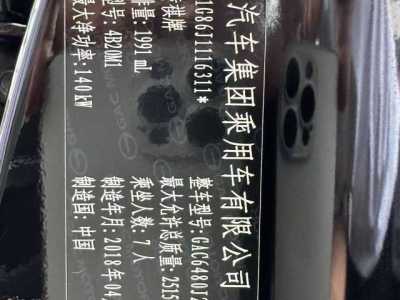 汽车集团乘用车有限公司
1G86J1116311* 整车型号: GAC6480J2
祺牌 最大允许总质量: 2515
量: 1991 mL 乘坐人数: 7人
型号: 4B20M1 制造年月: 2018年04
最大净功率: 140 kW 制造国: 中国